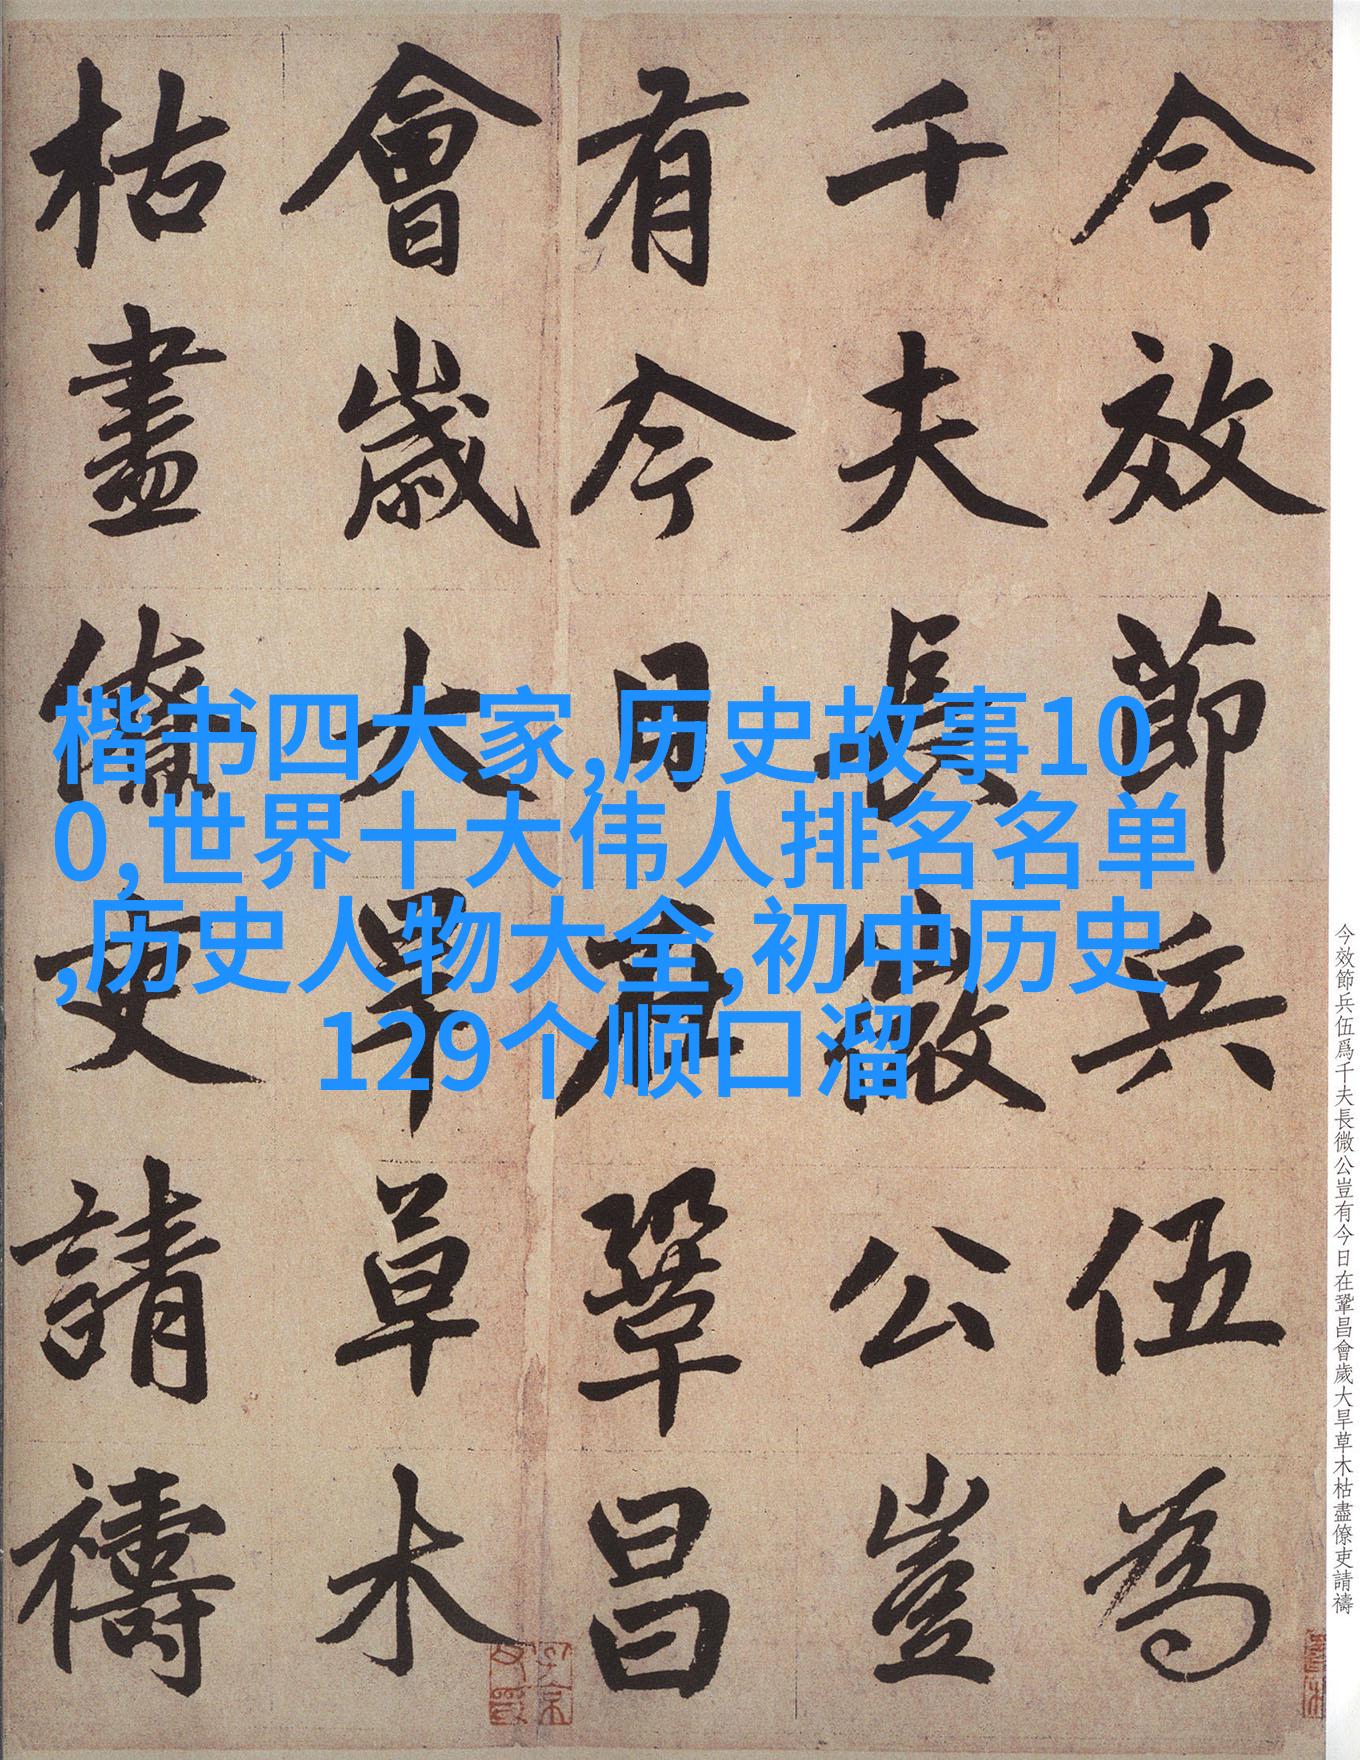 今效節兵伍為
千夫長微公豈
有今日在鞏昌
會歲大旱草木
枯盡僚吏請禱
楷书四大家,历史故事10
0,世界十大伟人排名名单
,历史人物大全,初中历史
129个顺口溜
今效節兵伍爲千夫長微公豈有今日在鞏昌會歲大旱草木枯盡僚吏請禱